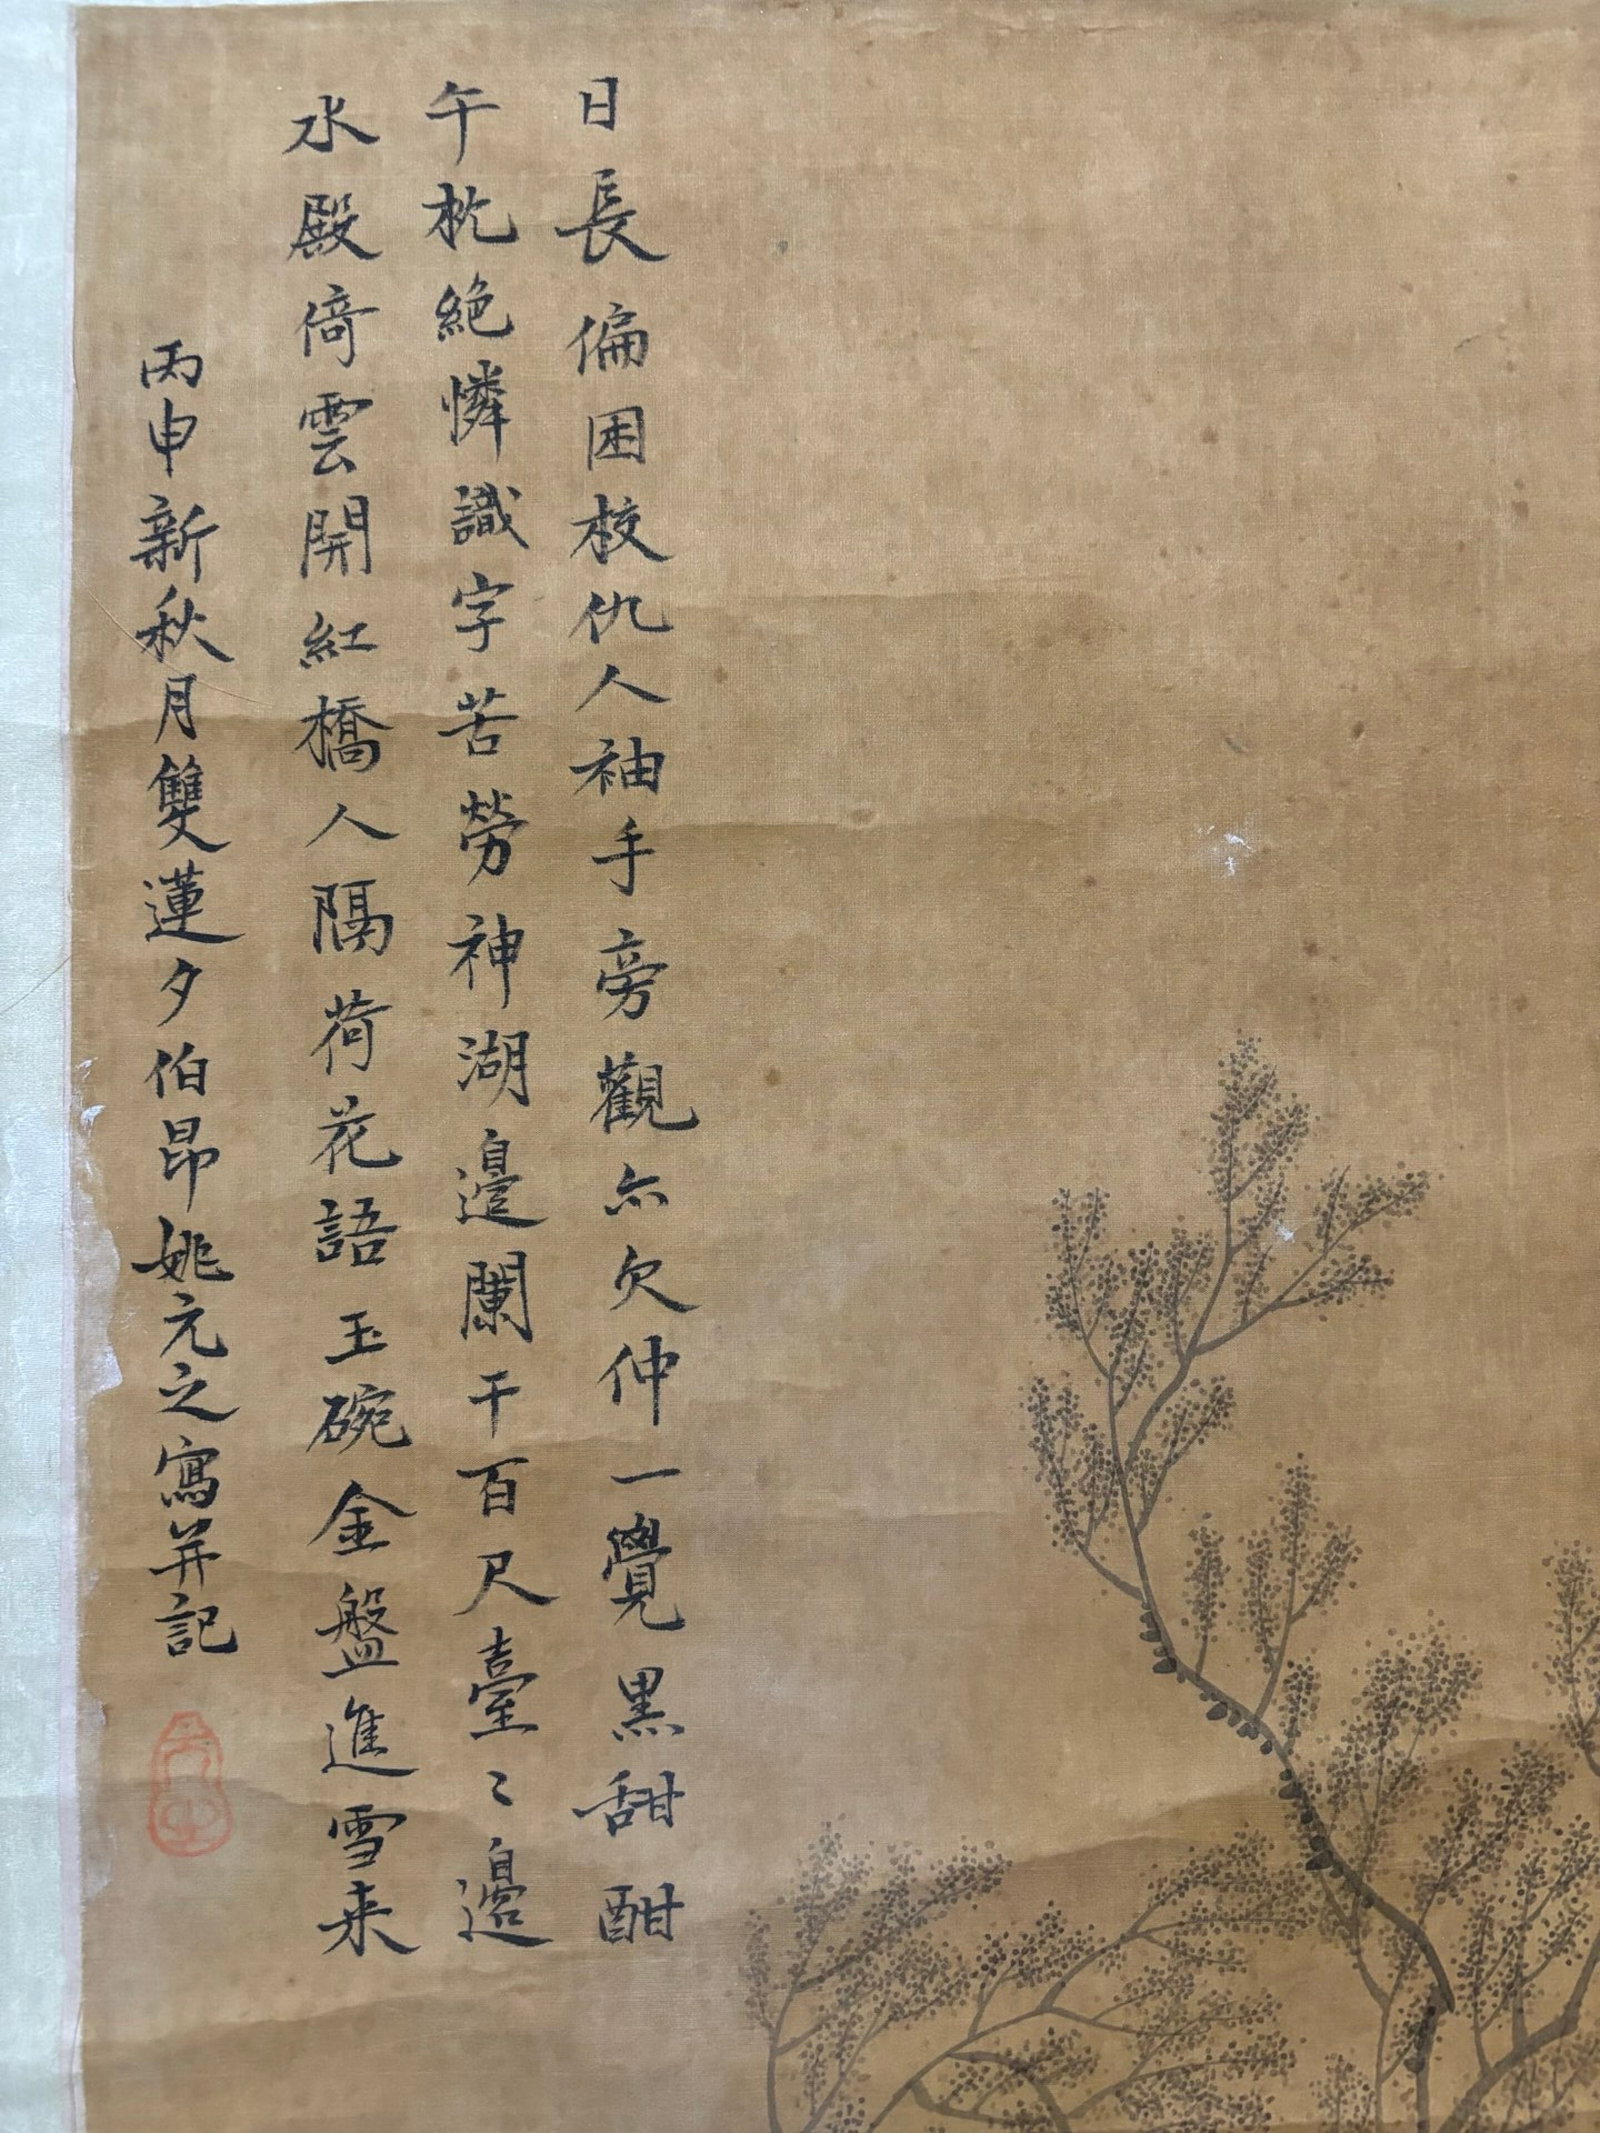 日長偏困校仇人袖手旁觀亦欠伸一覺黒甜酣
午枕絶憐識字苦勞神湖邊闌干百尺臺〻邊
水殿倚雲開紅橋人隔荷花語玉碗金盤進雪来
丙申新秋月雙蓮夕伯昂姚元之寫并記